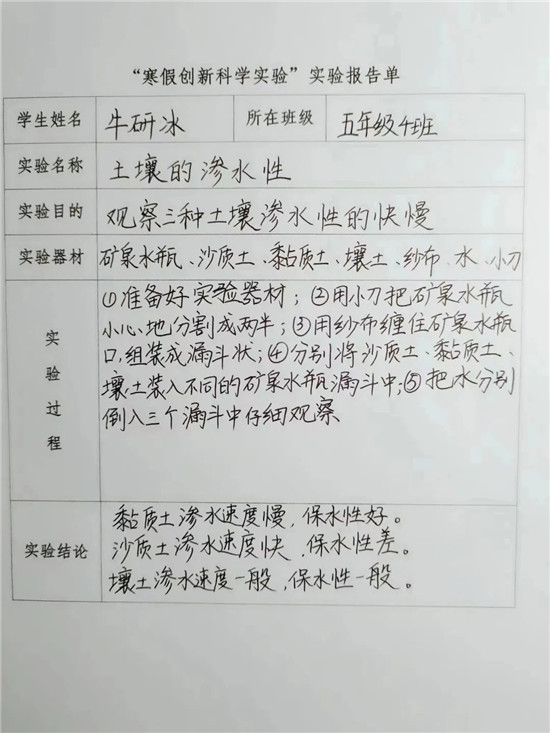 “寒假创新科学实验”实验报告单
学生姓名 牛研冰 所在班级 五年级4班
实验名称 土壤的渗水性
实验目的 观察三种土壤渗水性的快慢
实验器材 矿泉水瓶、沙质土、黏质土、壤土、纱布、水、小刀
实验过程
①准备好实验器材；②用小刀把矿泉水瓶
小心地分割成两半；③用纱布缠住矿泉水瓶
口,组装成漏斗状；④分别将沙质土、黏质土、
壤土装入不同的矿泉水瓶漏斗中;⑤把水分别
倒入三个漏斗中仔细观察
实验结论
黏质土渗水速度慢,保水性好。
沙质土渗水速度快,保水性差。
壤土渗水速度一般,保水性一般。